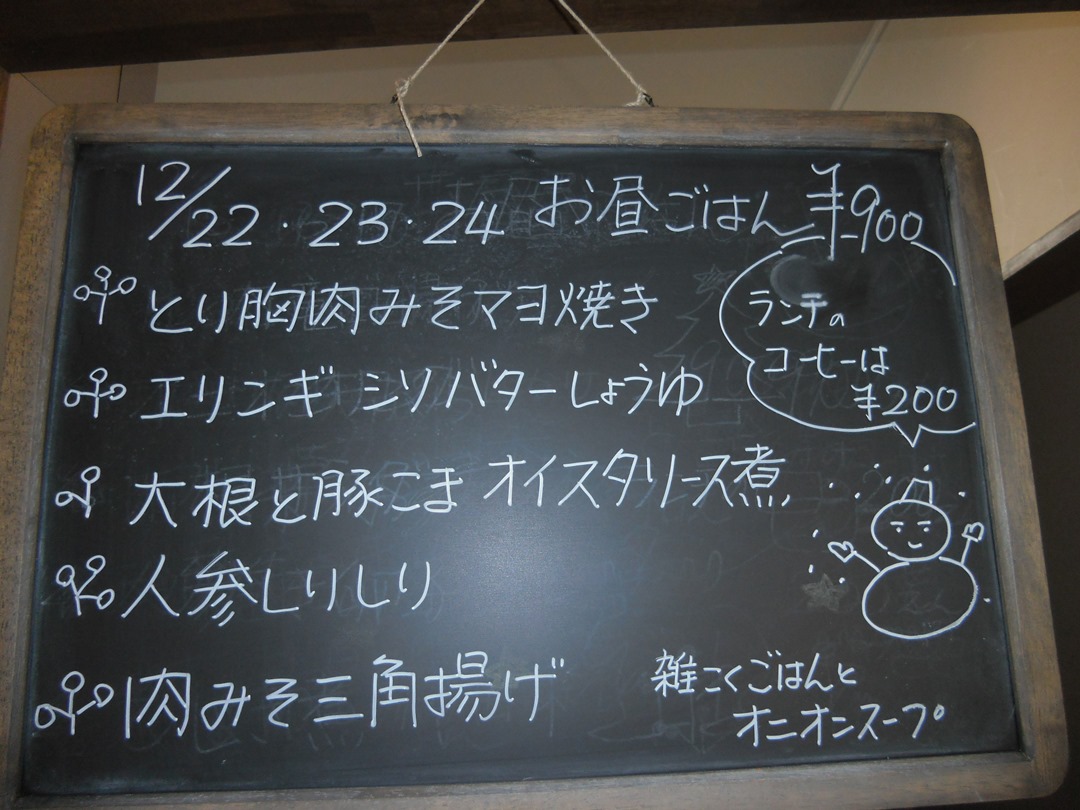 12/22・23・24 お昼ごはん ¥900
とり胸肉みそマヨ焼き
ランチの
コーヒーは
¥200
エリンギ シソバターしょうゆ
大根と豚こま オイスタソース煮
人参しりしり
肉みそ三角揚げ
雑こくごはんと
オニオンスープ